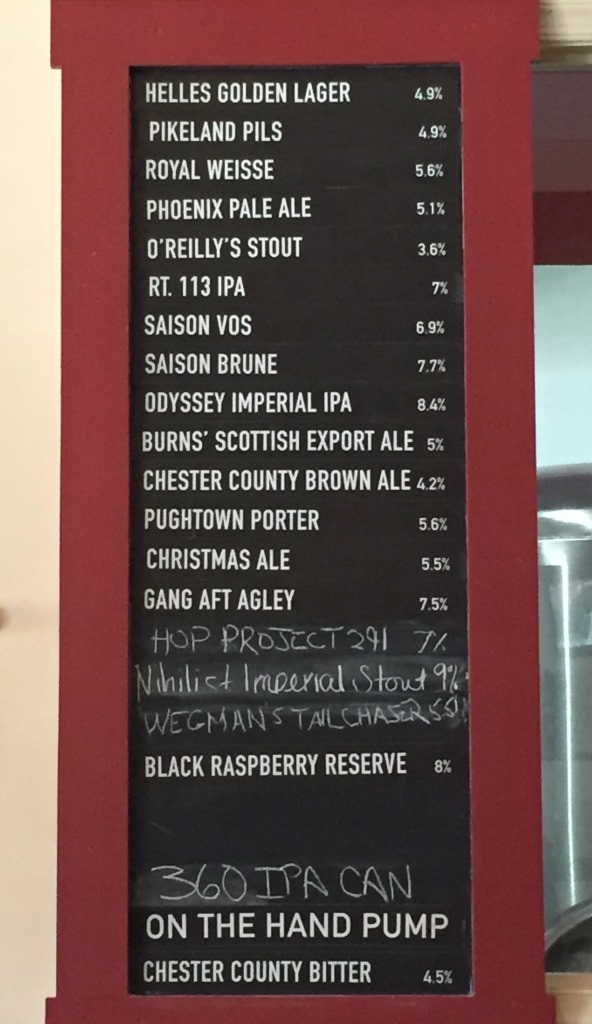 HELLES GOLDEN LAGER 4.9%
PIKELAND PILS 4.9%
ROYAL WEISSE 5.6%
PHOENIX PALE ALE 5.1%
O'REILLY'S STOUT 3.6%
RT. 113 IPA 7%
SAISON VOS 6.9%
SAISON BRUNE 7.7%
ODYSSEY IMPERIAL IPA 8.4%
BURNS' SCOTTISH EXPORT ALE 5%
CHESTER COUNTY BROWN ALE 4.2%
PUGHTOWN PORTER 5.6%
CHRISTMAS ALE 5.5%
GANG AFT AGLEY 7.5%
HOP PROJECT 291 7%
Nihilist Imperial Stout 9%
WEGMAN'S TAILCHASER
BLACK RASPBERRY RESERVE 8%
360 IPA CAN
ON THE HAND PUMP
CHESTER COUNTY BITTER 4.5%